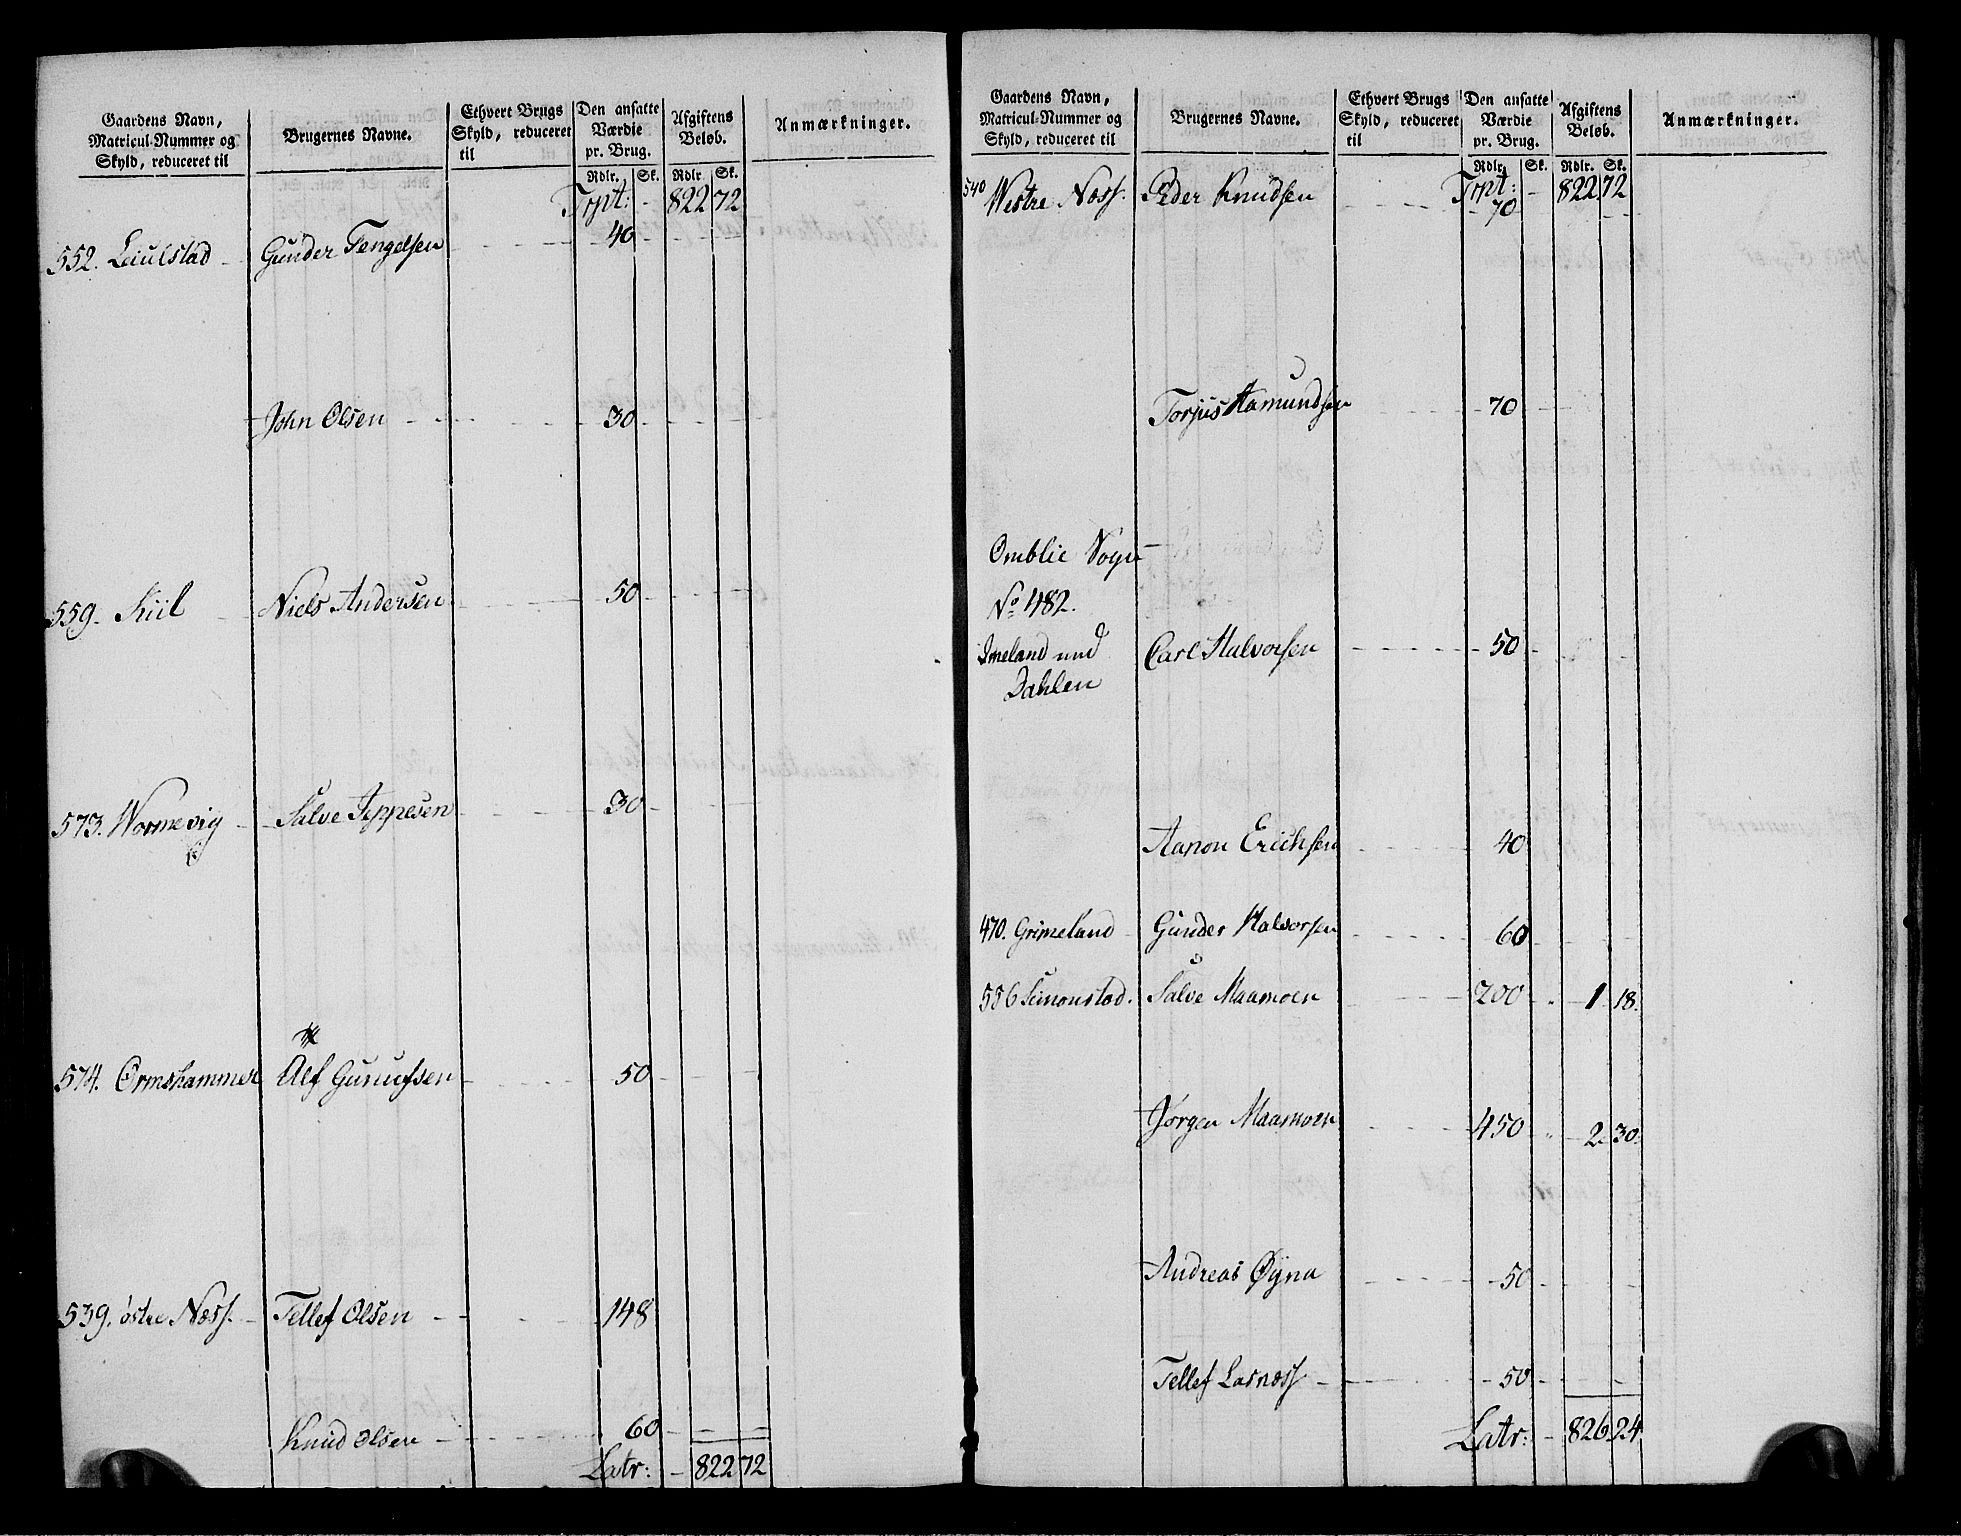 Gaardens Navn, Matricul-Nummer og Skyld, reduceret til | Brugernes Navne. | Ethvert Brugs Skyld, reduceret til | Den ansatte Værdie pr. Brug. | Afgiftens Beløb. | Anmærkninger.
Rdlr. Sk. Rdlr. Sk.
Trpt: - 822 72
552. Leiulstad Gunder Tengelsen 40
John Olsen 30
559. Kiil Niels Andersen 50
573. Wormevig Salve Jeppesen 30
574. Ormshammer Alf Gunufsen 50
539. østre Næss. Tellef Olsen 148
Knud Olsen 60
Latr: - 822 72
Gaardens Navn, Matricul-Nummer og Skyld, reduceret til | Brugernes Navne. | Ethvert Brugs Skyld, reduceret til | Den ansatte Værdie pr. Brug. | Afgiftens Beløb. | Anmærkninger.
Rdlr. Sk. Rdlr. Sk.
Trpt: - 822 72
540 Westre Næss. Peder Knudsen 70
Torjus Aamundsen 70
Omblie Sogn
No 482.
Imeland und Carl Halvorsen 50
Dahlen
Aanon Erichsen 40
470. Grimeland Gunder Halvorsen 60
556 Simonstad. Salve Maamoen 200 1 18.
Jørgen Maamoen 450 2 30.
Andreas Øyna 50
Tellef Lasness 50
Latr: - 826 24